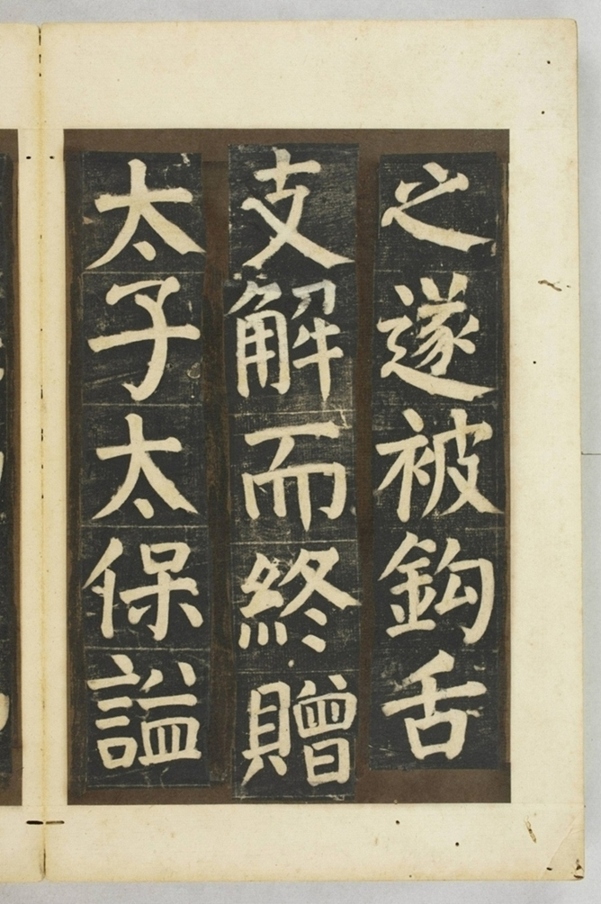 之遂被鈎舌
支解而終贈
太子太保謚